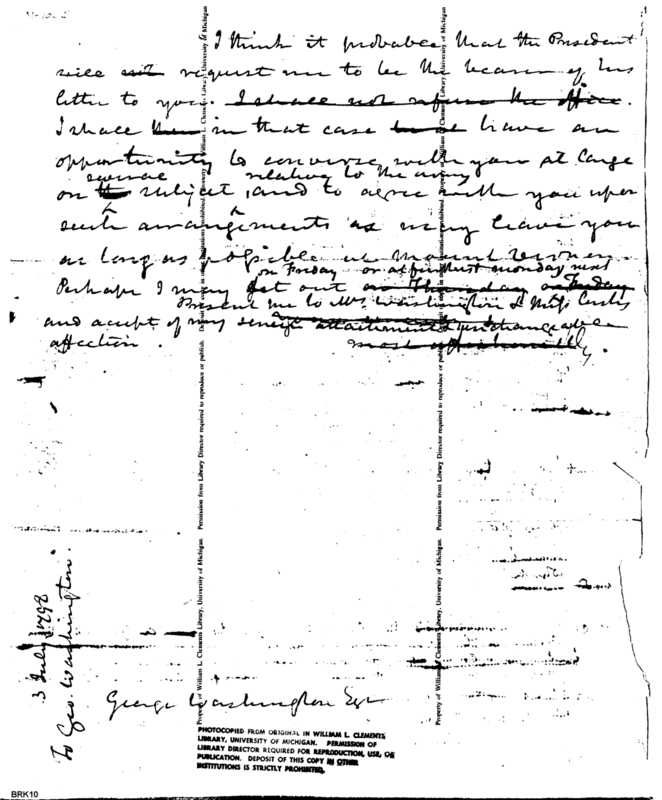 I think it probable that the President
will not request me to be the bearer of his
letter to you. I shall not refuse the office.
I shall then in that case have an
opportunity to converse with you at large
several relative to the army
on the subject, and to agree with you upon
such arrangements as may leave you
as long as possible at Mount Vernon.
on Friday or at furthest monday next
Perhaps I may set out on Thursday or Friday
Present me to Mrs Washington & Miss Custis
and accept of my sincere attachment & unchangeable
affection. most affectionately.
3 July 1798
To Geo. Washington.
George Washington Esqr
Property of William L. Clements Library, University of Michigan. Permission from Library Director required to reproduce or publish. Deposit of this copy in other institutions prohibited.
Property of William L. Clements Library, University of Michigan. Permission from Library Director required to reproduce or publish.
PHOTOCOPIED FROM ORIGINAL IN WILLIAM L. CLEMENTS
LIBRARY, UNIVERSITY OF MICHIGAN. PERMISSION OF
LIBRARY DIRECTOR REQUIRED FOR REPRODUCTION, USE, OR
PUBLICATION. DEPOSIT OF THIS COPY IN OTHER
INSTITUTIONS IS STRICTLY PROHIBITED.
BRK10